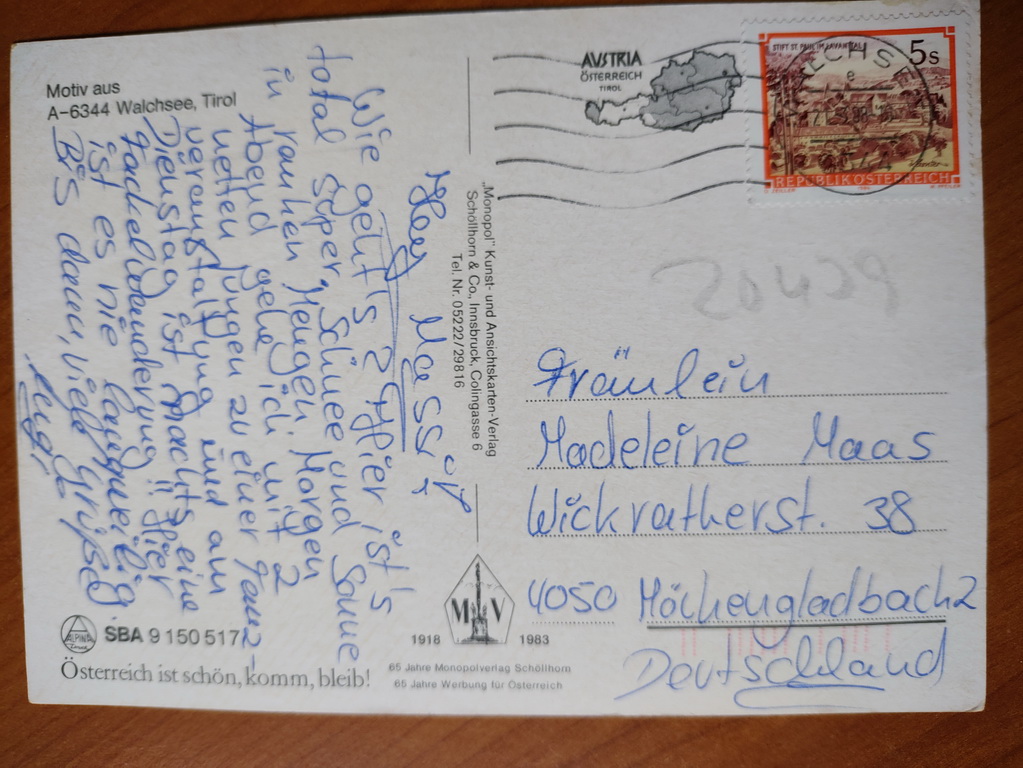 Motiv aus
A-6344 Walchsee, Tirol
Hey Massy
Wie geht's? Hier ist's
total super, Schnee und Sonne
in rauhen Mengen. Morgen
Abend gehe ich mit 2
netten Jungen zu einer Tanz-
veranstaltung und am
Dienstag ist nachts eine
Fackelwanderung!! Hier
ist es nie langweilig
Bis dann, viele Grüße
SBA 9 150 517
ALPINA
Österreich ist schön, komm, bleib!
„Monopol" Kunst- und Ansichtskarten-Verlag
Schöllhorn & Co., Innsbruck, Colingasse 6
Tel. Nr. 05222/29816
M V
1918 1983
65 Jahre Monopolverlag Schöllhorn
65 Jahre Werbung für Österreich
AUSTRIA
ÖSTERREICH
TIROL
STIFT ST. PAUL IM LAVANTTAL
5 S
REPUBLIK ÖSTERREICH
WALCHS
20429
Fräulein
Madeleine Maas
Wickratherst. 38
4050 Möchengladbach 2
Deutschland